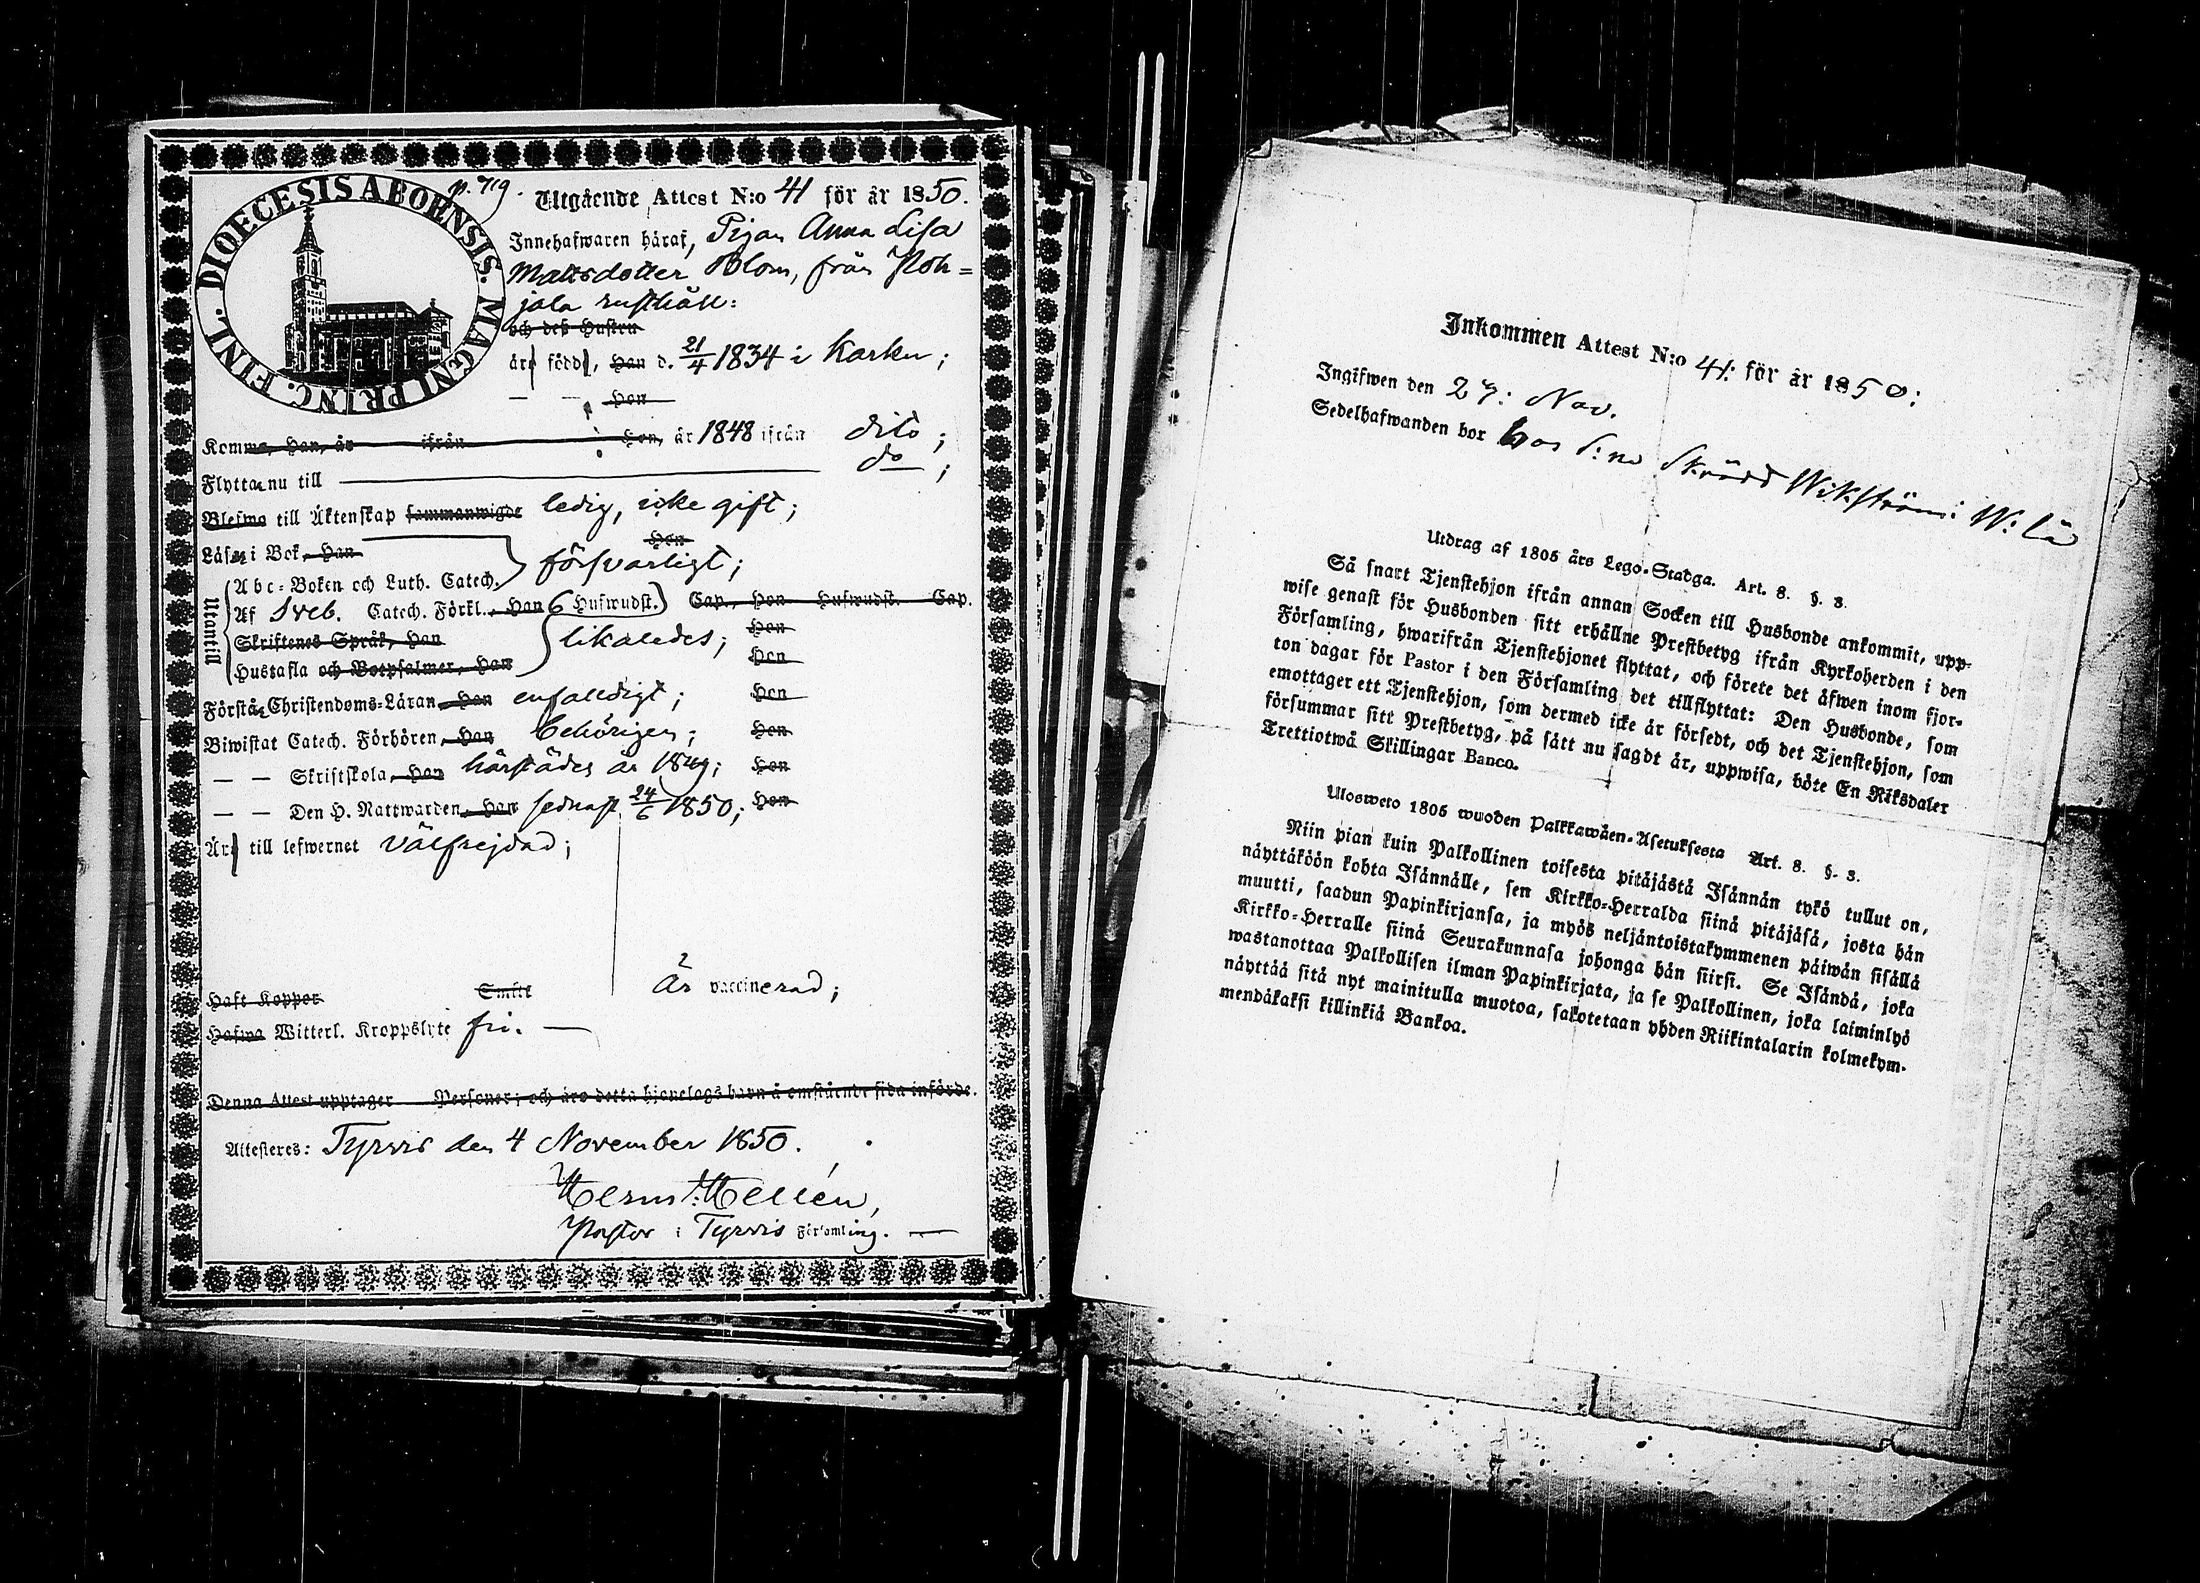 DIOECESIS ABOENSIS. MAGNI PRINC. FINL.
p. 719.
Utgående Attest N:o 41 för år 1850.
Innehafwaren häraf, Pigan Anna Lisa
Mattsdotter Blom, från Poh=
jola rusthåll:
och deß Hustru
äro född, Han d. 21/4 1834 i Karku;
— — Hon
Komma, Han, år ifrån Hon, år 1848 ifrån dito;
Flytta nu till do;
Blefwo till Äktenskap sammanwigde ledig, icke gift;
Läser i Bok, Han Hon
Abc=Boken och Luth. Catech. försvarligt;
Utantill
Af Sveb. Catech. Förkl., Han 6 Hufwudst. Cap., Hon Hufwudst. Cap.
Skriftenes Språk, Han likaledes; Hon
Hustafla och Botpsalmer, Han Hon
Förstå Christendoms=Läran, Han enfaldigt; Hon
Biwistat Catech. Förhören, Han behörigen; Hon
— — Skriftskola, Han härstädes år 1849; Hon
— — Den H. Nattwarden, Han sednast 24/6 1850; Hon
Äro till lefwernet välfrejdad;
Är vaccinerad;
Haft Koppor Smitt
Hafwa Witterl. Kroppslyte fri. —
Denna Attest upptager Personer; och äro detta hjonelags barn å omstående sida införde.
Attesteres: Tyrvis den 4 November 1850.
Herm: Hellén,
Pastor i Tyrvis Församling. —
Inkommen Attest N:o 41: för år 1850:
Ingifwen den 27: Nov.
Sedelhafwanden bor hos S:ne Skrädd Wikström: W:
Utdrag af 1805 års Lego-Stadga. Art. 8. §. 3.
Så snart Tjenstehjon ifrån annan Socken till Husbonde ankommit, upp-
wise genast för Husbonden sitt erhållne Prestbetyg ifrån Kyrkoherden i den
Församling, hwarifrån Tjenstehjonet flyttat, och förete det äfwen inom fjor-
ton dagar för Pastor i den Församling det tillflyttat: Den Husbonde, som
emottager ett Tjenstehjon, som dermed icke är försedt, och det Tjenstehjon, som
försummar sitt Prestbetyg, på sätt nu sagdt är, uppwisa, böte En Riksdaler
Trettiotwå Skillingar Banco.
Ulosweto 1805 wuoden Palkkawäen-Asetuksesta Art. 8. §. 3.
Niin pian kuin Palkollinen toisesta pitäjästä Isännän tykö tullut on,
näyttäköön kohta Isännälle, sen Kirkko-Herralda siinä pitäjäsä, josta hän
muutti, saadun Papinkirjansa, ja myös neljäntoistakymmenen päiwän sisällä
Kirkko-Herralle siinä Seurakunnasa johonga hän siirsi. Se Isändä, joka
wastanottaa Palkollisen ilman Papinkirjata, ja se Palkollinen, joka laiminlyö
näyttää sitä nyt mainitulla muotoa, sakotetaan yhden Riikintalarin kolmekym-
mendäkaksi killinkiä Bankoa.